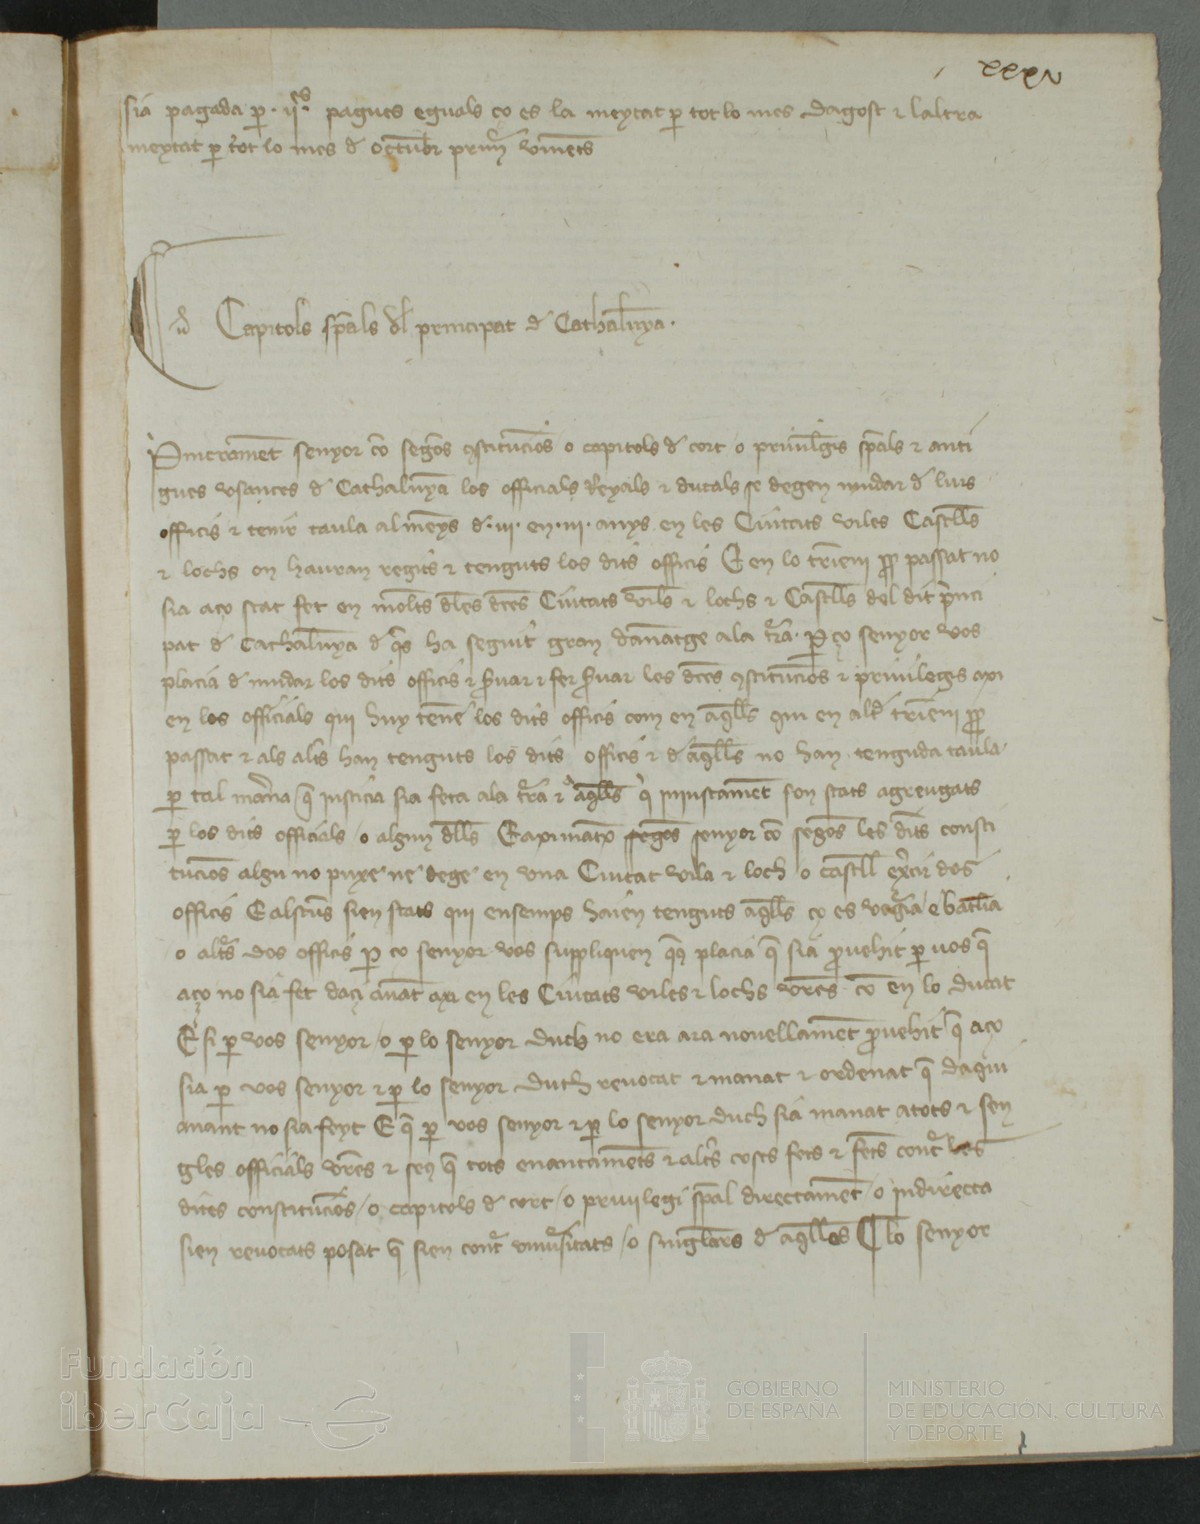 xxxv
sia pagada p. ii.s pagues eguals ço es la meytat p tot lo mes dagost e laltra
meytat p tot lo mes d octubr prim vinets
Capitols spals dl principat d Cathalunya.
Primeramet senyor co segos ostitucios o capitols d cort o privilegis spals e anti
gues usances d Cathalunya los officials Reyals e ducals se degen mudar d lurs
officis e tenir taula almeys d.iii. en.iii. anys en les Ciutats viles Castells
e lochs on hauran regits e tenguts los dits officis E en lo trieni prop passat no
sia aço stat fet en molts dles dces Ciutats viles e lochs e Castells del dit princi
pat d Cathalunya d qs ha seguit gran danatge ala tra. P ço senyor vos
placia d mudar los dits officis e svar e fer svar les dces ostitucios e privilegis axi
en los officials qui huy tene los dits officis com en aqlls qui en alt trieni prop
passat e als alts han tenguts los dits officis e d aqlls no han tenguda taula
p tal manera q justicia sia feta ala tra e a aqlls q injustamet son stats agreugats
p los dits officials /o algun dlls E aximatx segos senyor co segos les dits consti
tucios algu no puxe ne dege en una Ciutat vila e loch /o castell exercir dos
officis E alscuns sien stats qui ensemps haien tenguts aqlls ço es vagria e batlia
o alts dos officis P ço senyor vos suppliquen qus placia q sia provehit p vos q
aço no sia fet daçi avat axi en les Ciutats viles e lochs vres co en lo ducat
E si p vos senyor /o p lo senyor duch no era ara novellamet provehit q aço
sia p vos senyor e p lo senyor duch revocat e manat e ordenat q daqui
avant no sia feyt E q p vos senyor e p lo senyor duch sia manat atots e sen
gles officials vres e seus q tots enantamets e alts coses fets e fets cont les
dites constitucios /o capitols d cort /o privilegi spal directamet /o indirecta
sien revocats posat q sien cont universitats /o singlars d aqlles Lo senyor
Fundación
iberCaja
GOBIERNO
DE ESPAÑA
MINISTERIO
DE EDUCACIÓN, CULTURA
Y DEPORTE